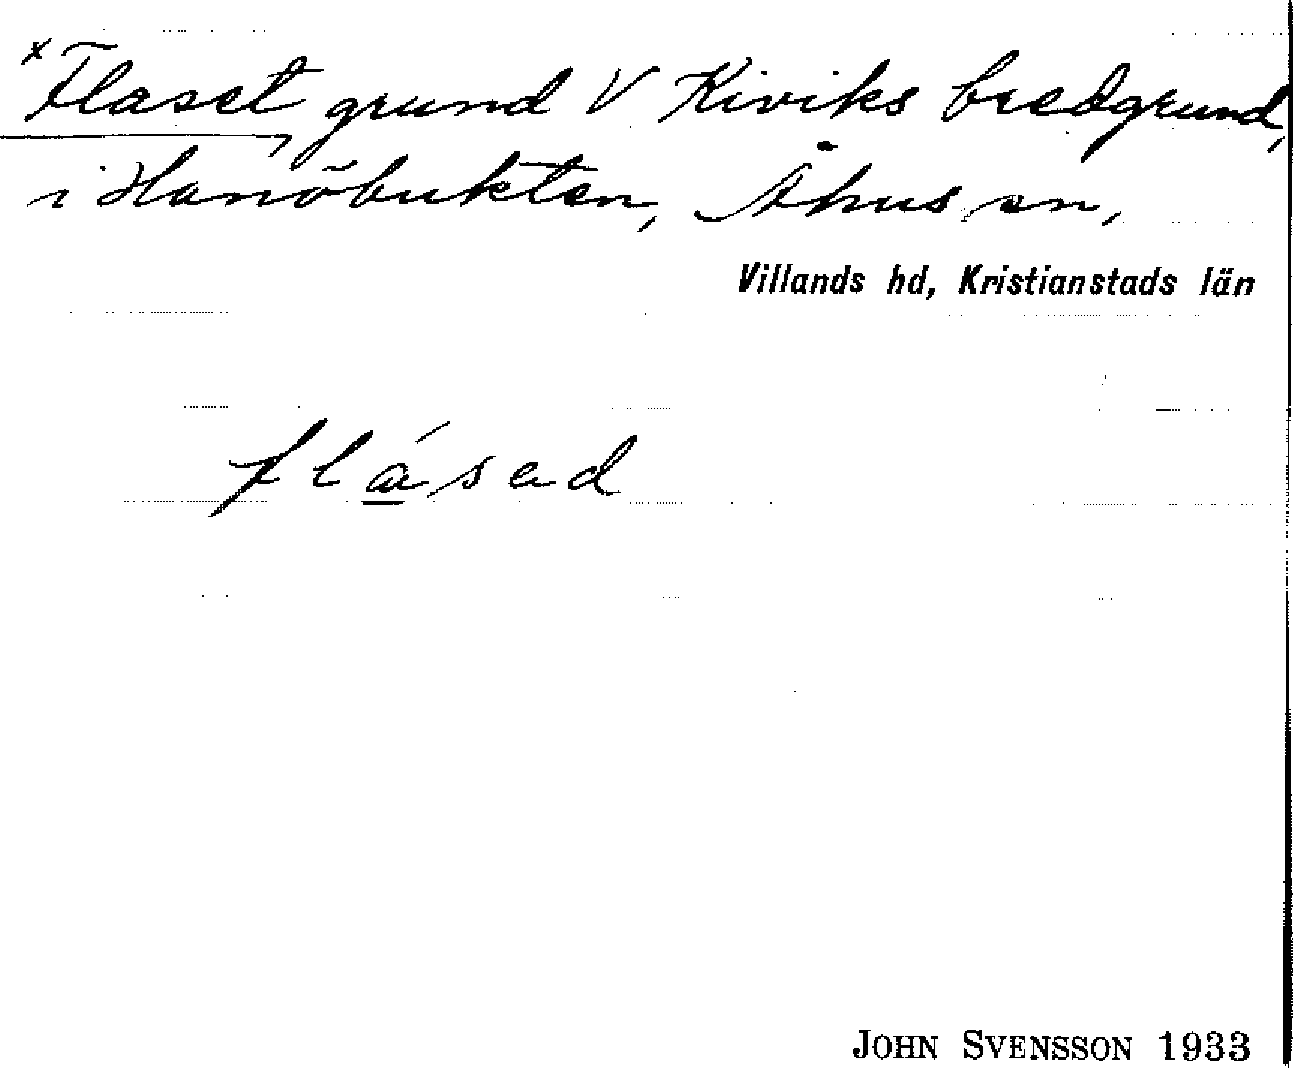 x Flaset, grund V Kiviks bredgrund,
i Hanöbukten, Åhus sn,
Villands hd, Kristianstads län
flásad
JOHN SVENSSON 1933